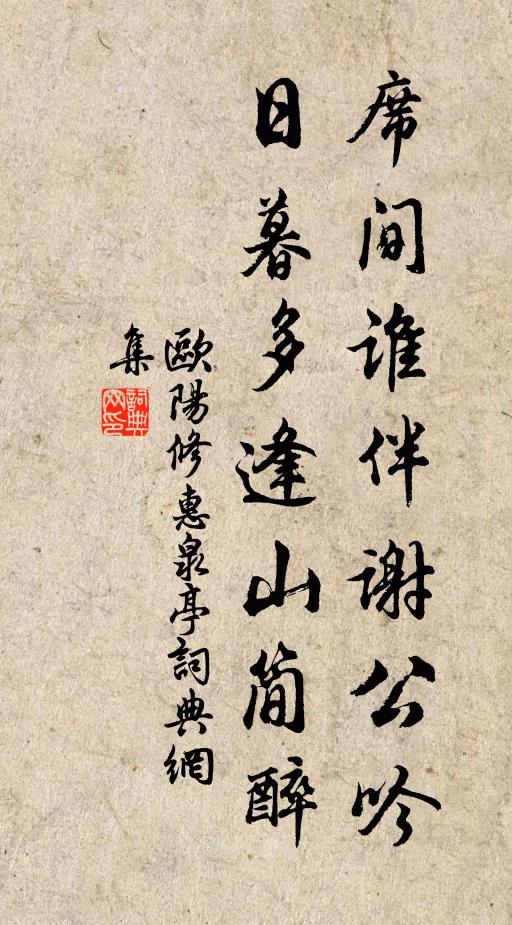 席間誰伴謝公吟
日暮多逢山簡醉
歐陽修惠泉亭詞典網
集
詞典網印